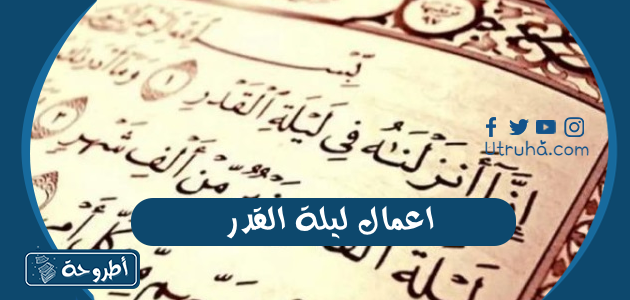 إِنَّآ أَنزَلْنَٰهُ فِى لَيْلَةِ ٱلْقَدْرِ ١ وَمَآ أَدْرَىٰكَ
لَيْلَةُ
مِّنْ أَلْفِ شَهْرٍ ٣
مِّن كُلِّ
Utruha.com
اعمال ليلة القدر
أطروحة